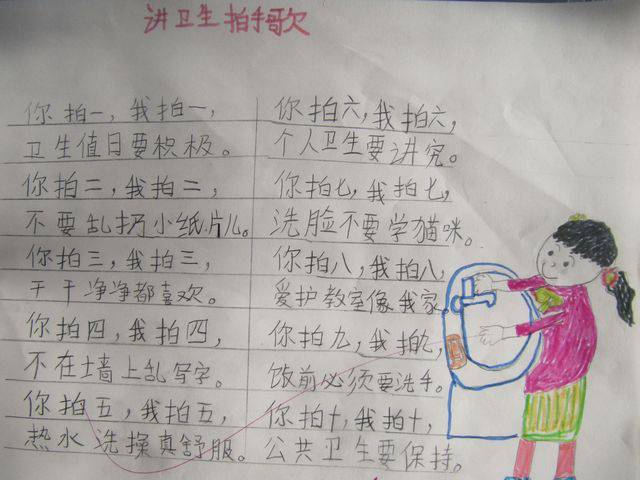 讲卫生拍手歌
你拍一，我拍一，
卫生值日要积极。
你拍二，我拍二，
不要乱扔小纸片儿。
你拍三，我拍三，
干干净净都喜欢。
你拍四，我拍四，
不在墙上乱写字。
你拍五，我拍五，
热水洗操真舒服。
你拍六，我拍六，
个人卫生要讲究。
你拍七，我拍七，
洗脸不要学猫咪。
你拍八，我拍八，
爱护教室像我家。
你拍九，我拍九，
饭前必须要洗手。
你拍十，我拍十，
公共卫生要保持。